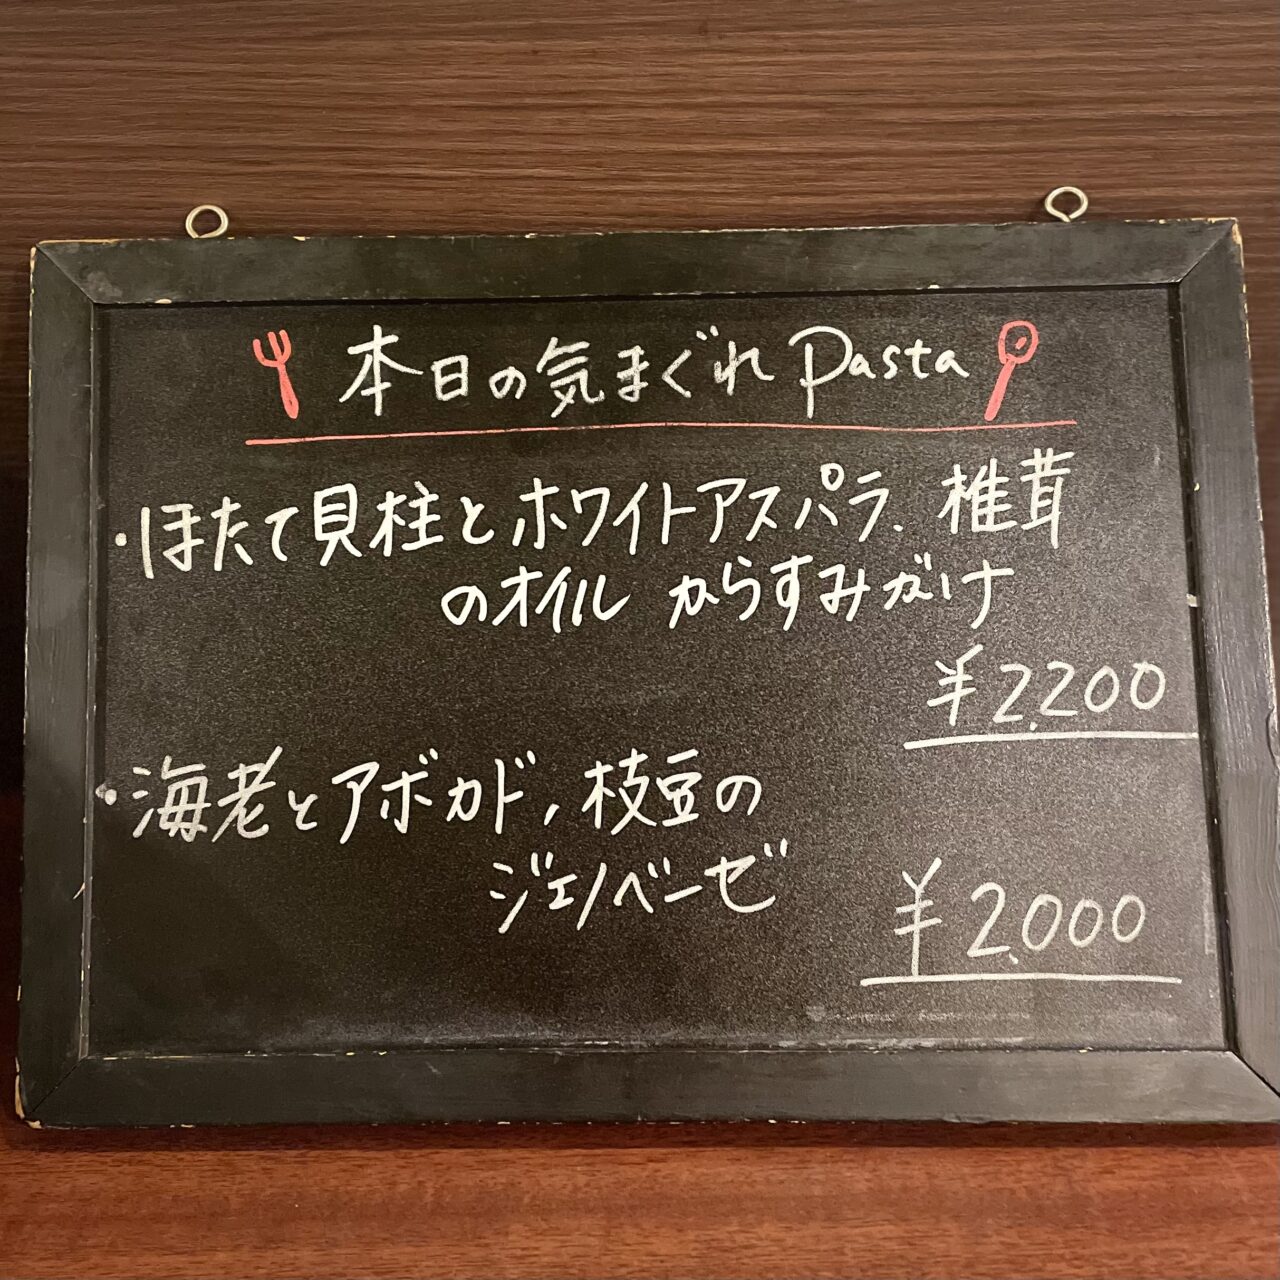 本日の気まぐれPasta
・ほたて貝柱とホワイトアスパラ、椎茸
のオイル からすみがけ
¥2,200
・海老とアボカド,枝豆の
ジェノベーゼ
¥2,000